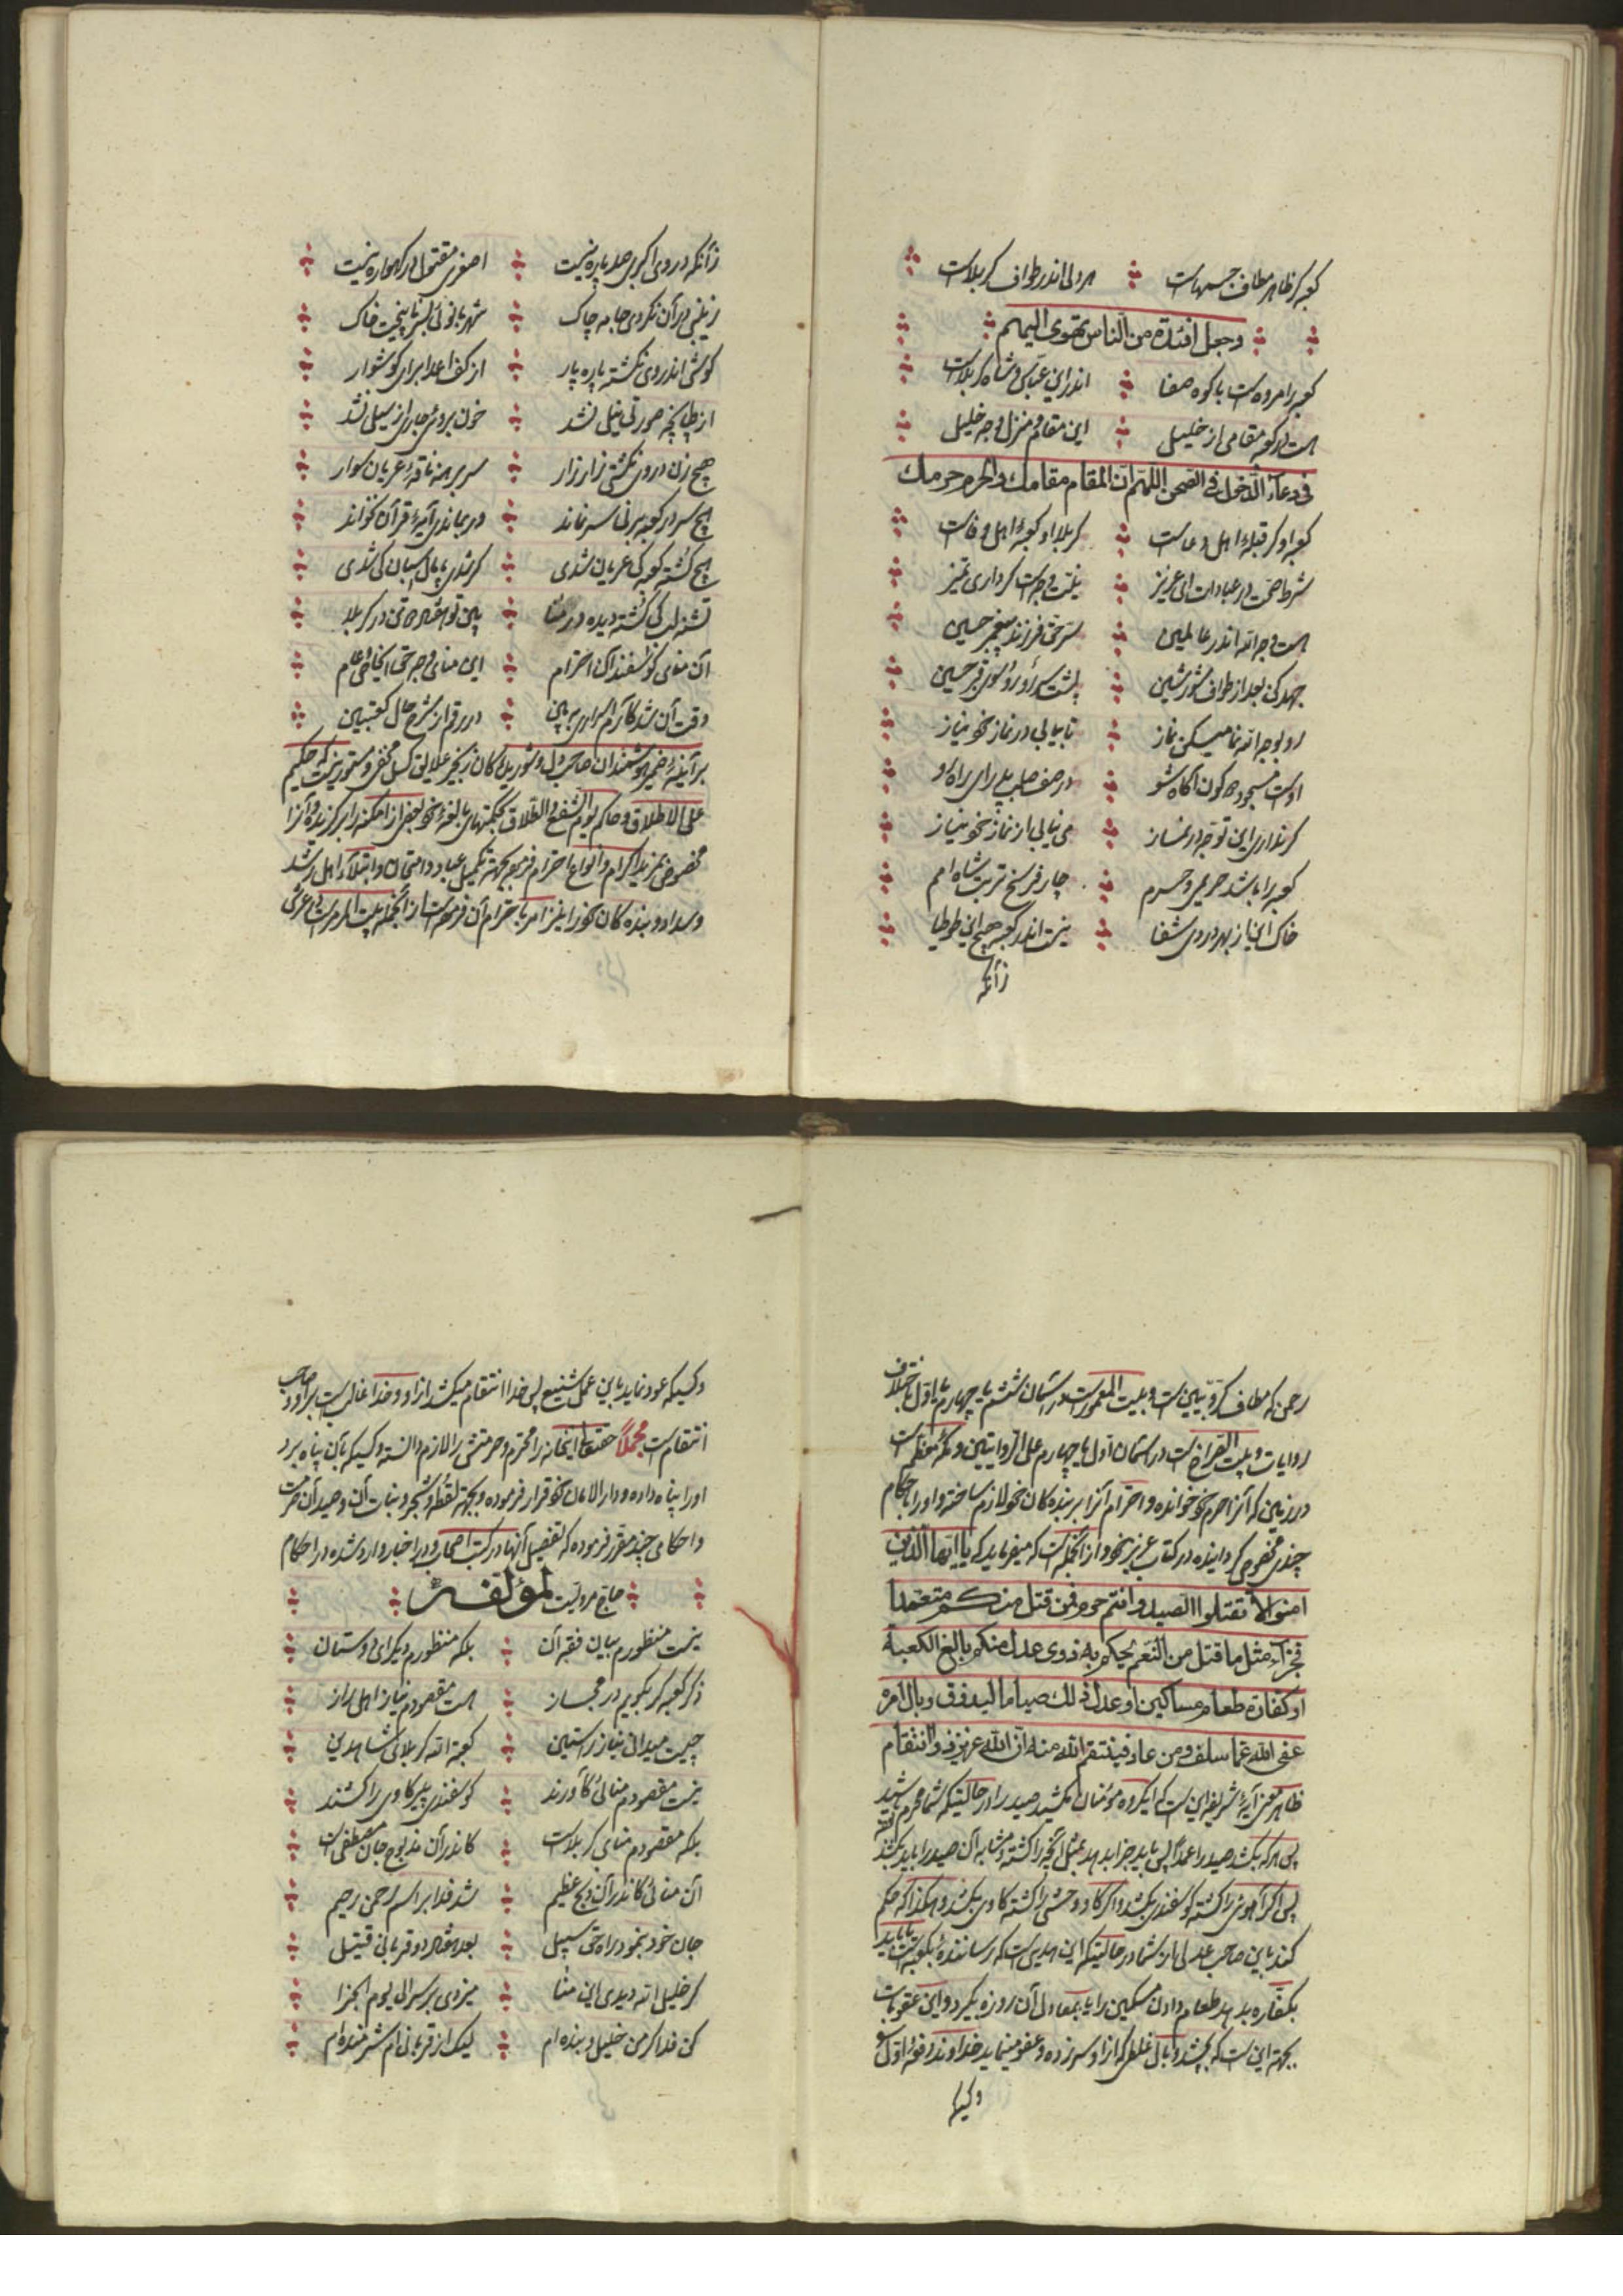 کعبه کر ظاهر مطاف جسمهاست هر دلی اندر طواف کربلاست
وجعل افئدة من الناس تهوی الیهم
کعبه را مروه است با کوه صفا اندر این عباس و شاه کربلاست
هست در کعبه مقامی از خلیل این مقام و منزل وجه خلیل
فی دعآء الدخول فی الصحن اللهم ان المقام مقامك والحرم حرمك
کعبه او کر قبلهٔ اهل دعاست کربلا او کعبهٔ اهل وفاست
شرط صحت در عبادات ای عزیز نیت وجه است کر داری تمیز
هست وجه الله اندر عالمین سر حق فرزند پیغمبر حسین
جهد کن بعد از طواف شورشین پشت سر رو رو بسوی قبر حسین
رو بوجه الله نما میکن نماز تا بیابی در نماز خود نیاز
اوست مسجود دو کون آکاه شو در صف صاحب دلی رای راه کو
کر نداری این توجه در نماز می نیابی از نماز خود نیاز
کعبه را باشد حریمی و حرم چار فرسخ تربت شاه امم
خاک این باز بهر دردی شفا نیست اندر کعبه هیچ این طوطیا
زآنکه
زآنکه در وی اکبری صد پاره نیست اصغری مقتول در کهواره نیست
زینبی در آن نکردی جامه چاک شهربانوئی بسر نا ریخت خاک
کوشی اندر وی نکشته پاره پار از کف اعدا برای کوشوار
از طپانچه صورتی نیلی نشد خون بروی جاری از سیلی نشد
هیچ زن در وی نکشتی زار زار سر برهنه ناقهٔ عریان سوار
هیچ سر در کعبه بر نی سر نماند در بماندی آیهٔ قرآن نخواند
هیچ کشته کعبه کی عریان شدی کر شدی پامال اسبان کی شدی
تشنه لب کی کشته دیده در منا بین تو هفتاد و دو تن در کربلا
آن منای کوسفند آن احترام این منای وجه حق اینجا عوام
وقت آن شد کآرم اسراری به بین در رقم از شرح حال کعبتین
بر آینهٔ ضمیر هوشمندان صاحب دل و شوریدکان زنجیر علایق کسل مخفی و مستور نیست که حکیم
علی الاطلاق و حاکم یوم الشفع والطلاق بحکمتهای بالغهٔ خود بعض از امکنه را برکزیده و آنرا
مخصوص بمزید اکرام و انواع احترام فرموده بجهة تکمیل عباد و امتحان و ابتلاء اهل رشد
و سداد و بنده کان خود را نیز امر باحترام آن فرموده است از انجمله بیت المحرم است فی عرش
رحمن که مطاف کروبیین است و بیت المعمور است در آسمان ششم یا چهارم یا اول باختلاف
روایات و بیت الضراح است در آسمان اول یا چهارم علی الروایتین و مکهٔ معظمه است
در زمین که آنرا حرم خود خوانده و احترام آنرا بر بنده کان خود لازم ساخته و او را باحکام
چندی مخصوص کردانیده در کتاب عزیز خود و از انجمله است که میفرماید که یا ایها الذین
امنوا لا تقتلوا الصید وانتم حرم فمن قتل منکم متعمدا
فجزآء مثل ما قتل من النعم یحکم به ذوی عدل منکم بالغ الکعبة
او کفارة طعام مساکین او عدل ذلك صیاما لیذوق وبال امره
عفی الله عما سلف ومن عاد فینتقم الله منه ان الله عزیز ذو انتقام
ظاهر معنی آیهٔ شریفه این است که ایکروه مؤمنان مکشید صید را در حالتیکه شما محرم باشید
پس هر که بکشد صید را عمداً پس باید جزا بدهد بمثل آنچه را کشته و مشابه آن صید را باید بکشد
پس اکر آهوئی را کشته کوسفندی بکشد و اکر کاو وحشی را کشته کاوی بکشد و هکذا که حکم
کند باین صاحب عدلی از شما در حالتیکه این هدیی است که رساننده بکعبه است یا باید
بکفاره بدهد طعام دادن مسکین را یا بمعادل آن روزه بکیرد و این عقوبات
بجهة این است که بچشد وبال غلطی که از او سر زده و عفو مینماید خداوند دفعهٔ اول
وکسیکه
وکسیکه عود نماید باین عمل شنیع پس خدا انتقام میکشد از او و خدا غالب است بر او و صاحب
انتقام است مجملاً حقتعالی اینخانه را محترم و حرمتش را لازم دانسته و کسیکه بآن پناه برد
او را پناه داده و دار الامان خود قرار فرموده و بجهة لقطه و شجر و نبات آن و صید آن حرمت
و احکامی چند مقرر فرموده که تفصیل آنها در کتب اصحاب و در اخبار وارد شده در احکام
حاج مرویست لمؤلفه
نیست منظورم بیان فقه آن بلکه منظورم دیکر ای دوستان
ذکر کعبه کر بکویم در مجاز هست مقصودم نیاز اهل راز
چیست میدانی نیاز راستین کعبة الله کربلای شاه دین
نیست مقصودم منائی کآورند کوسفندی پیر کاوی را کشند
بلکه مقصودم منای کربلاست کاندر آن مذبوح جان مصطفی است
آن منائی کاندر آن ذبح عظیم شد فدا بر اسم رحمن رحیم
جان خود بنمود در راه حق سبیل بعد هفتاد و دو قربانی قتیل
کر خلیل الله دیدی این منا میزدی بر سر الی یوم الجزا
کی فدا کر من خلیل و بنده ام لیک از قربانی ام شرمنده ام